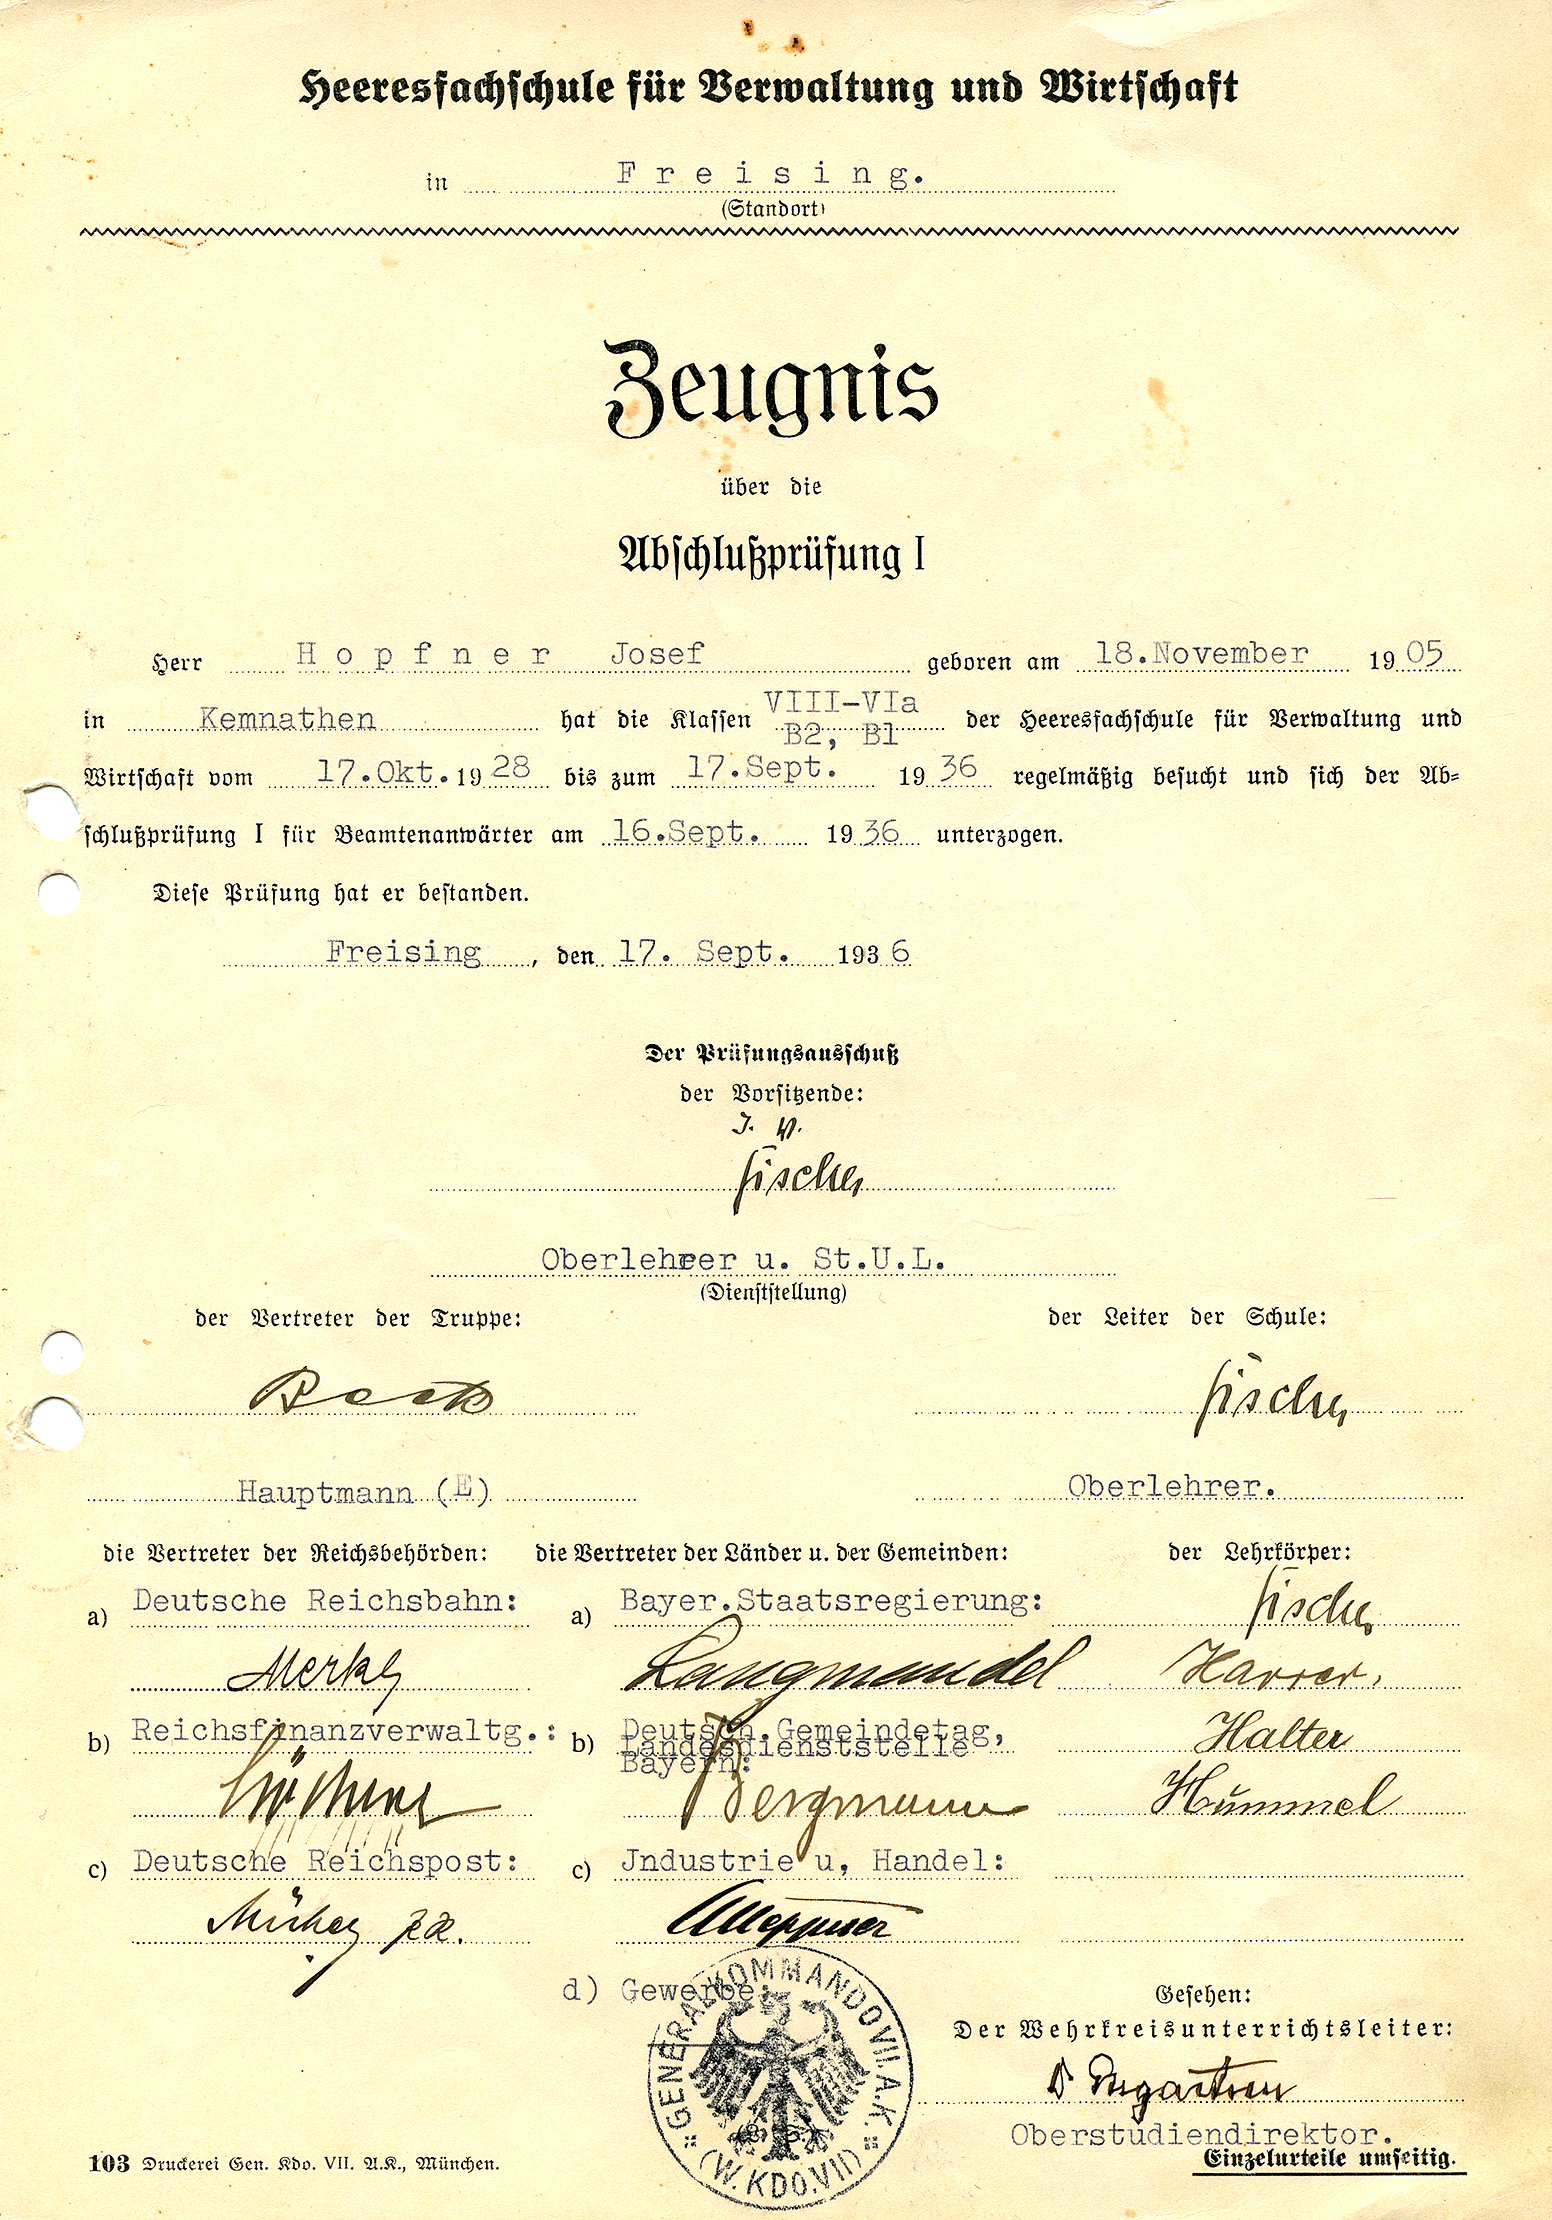 Heeresfachschule für Verwaltung und Wirtschaft
in Freising.
(Standort)
Zeugnis
über die
Abschlußprüfung I
Herr Hopfner Josef geboren am 18.November 1905
in Kemnathen hat die Klassen VIII-VIa B2, B1 der Heeresfachschule für Verwaltung und
Wirtschaft vom 17.Okt. 1928 bis zum 17.Sept. 1936 regelmäßig besucht und sich der Ab-
schlußprüfung I für Beamtenanwärter am 16.Sept. 1936 unterzogen.
Diese Prüfung hat er bestanden.
Freising, den 17. Sept. 1936
Der Prüfungsausschuß
der Vorsitzende:
J. V.
Fischer
Oberlehrer u. St.U.L.
(Dienststellung)
der Vertreter der Truppe: der Leiter der Schule:
Beck Fischer
Hauptmann (E) Oberlehrer.
die Vertreter der Reichsbehörden: die Vertreter der Länder u. der Gemeinden: der Lehrkörper:
a) Deutsche Reichsbahn: a) Bayer.Staatsregierung: Fischer
Merkl Langmandel Harrer.
b) Reichsfinanzverwaltg.: b) Deutsch.Gemeindetag, Halter
Landesdienststelle
Bayern:
Bergmann Hummel
c) Deutsche Reichspost: c) Jndustrie u, Handel:
d) Gewerbe:
GENERALKOMMANDO VII. A.K.
(W.KDO.VII)
Gesehen:
Der Wehrkreisunterrichtsleiter:
Oberstudiendirektor.
Einzelurteile umseitig.
103 Druckerei Gen. Kdo. VII. A.K., München.